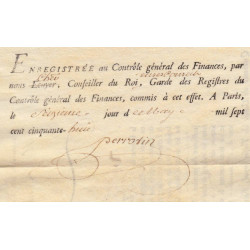 ENREGISTRÉE au Contrôle général des Finances, par
nous Ecuyer, Conseiller du Roi, Garde des Registres du
Contrôle général des Finances, commis à cet effet. A Paris,
le jour d mil sept
cent cinquante-huit
perrotin